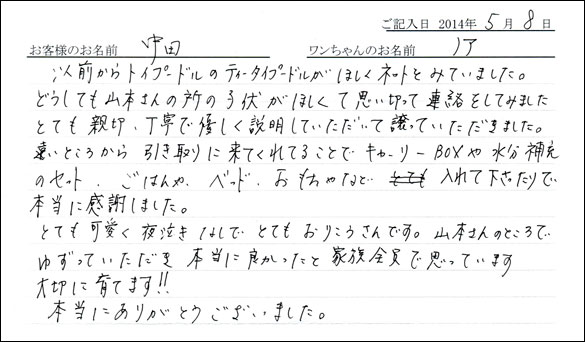 ご記入日 2014年 5月 8日
お客様のお名前 中田 ワンちゃんのお名前 ノア
以前からトイプードルのティータイプードルがほしくネットとみていました。
どうしても山本さんの所の子伏がほしくて思い切って連絡をしてみました
とても親切、丁寧で優しく説明していただいて譲っていただきました。
遠いところから引き取りに来てくれてることでキャリーBOXや水分補充
のセット、ごはんや、ベッド、おもちゃなど とても 入れて下さったりで、
本当に感謝しました。
とても可愛く夜泣きなしでとてもおりこうさんです。山本さんのところで
ゆずっていただき 本当に良かったと家族全員で思っています
大切に育てます!!
本当にありがとうございました。